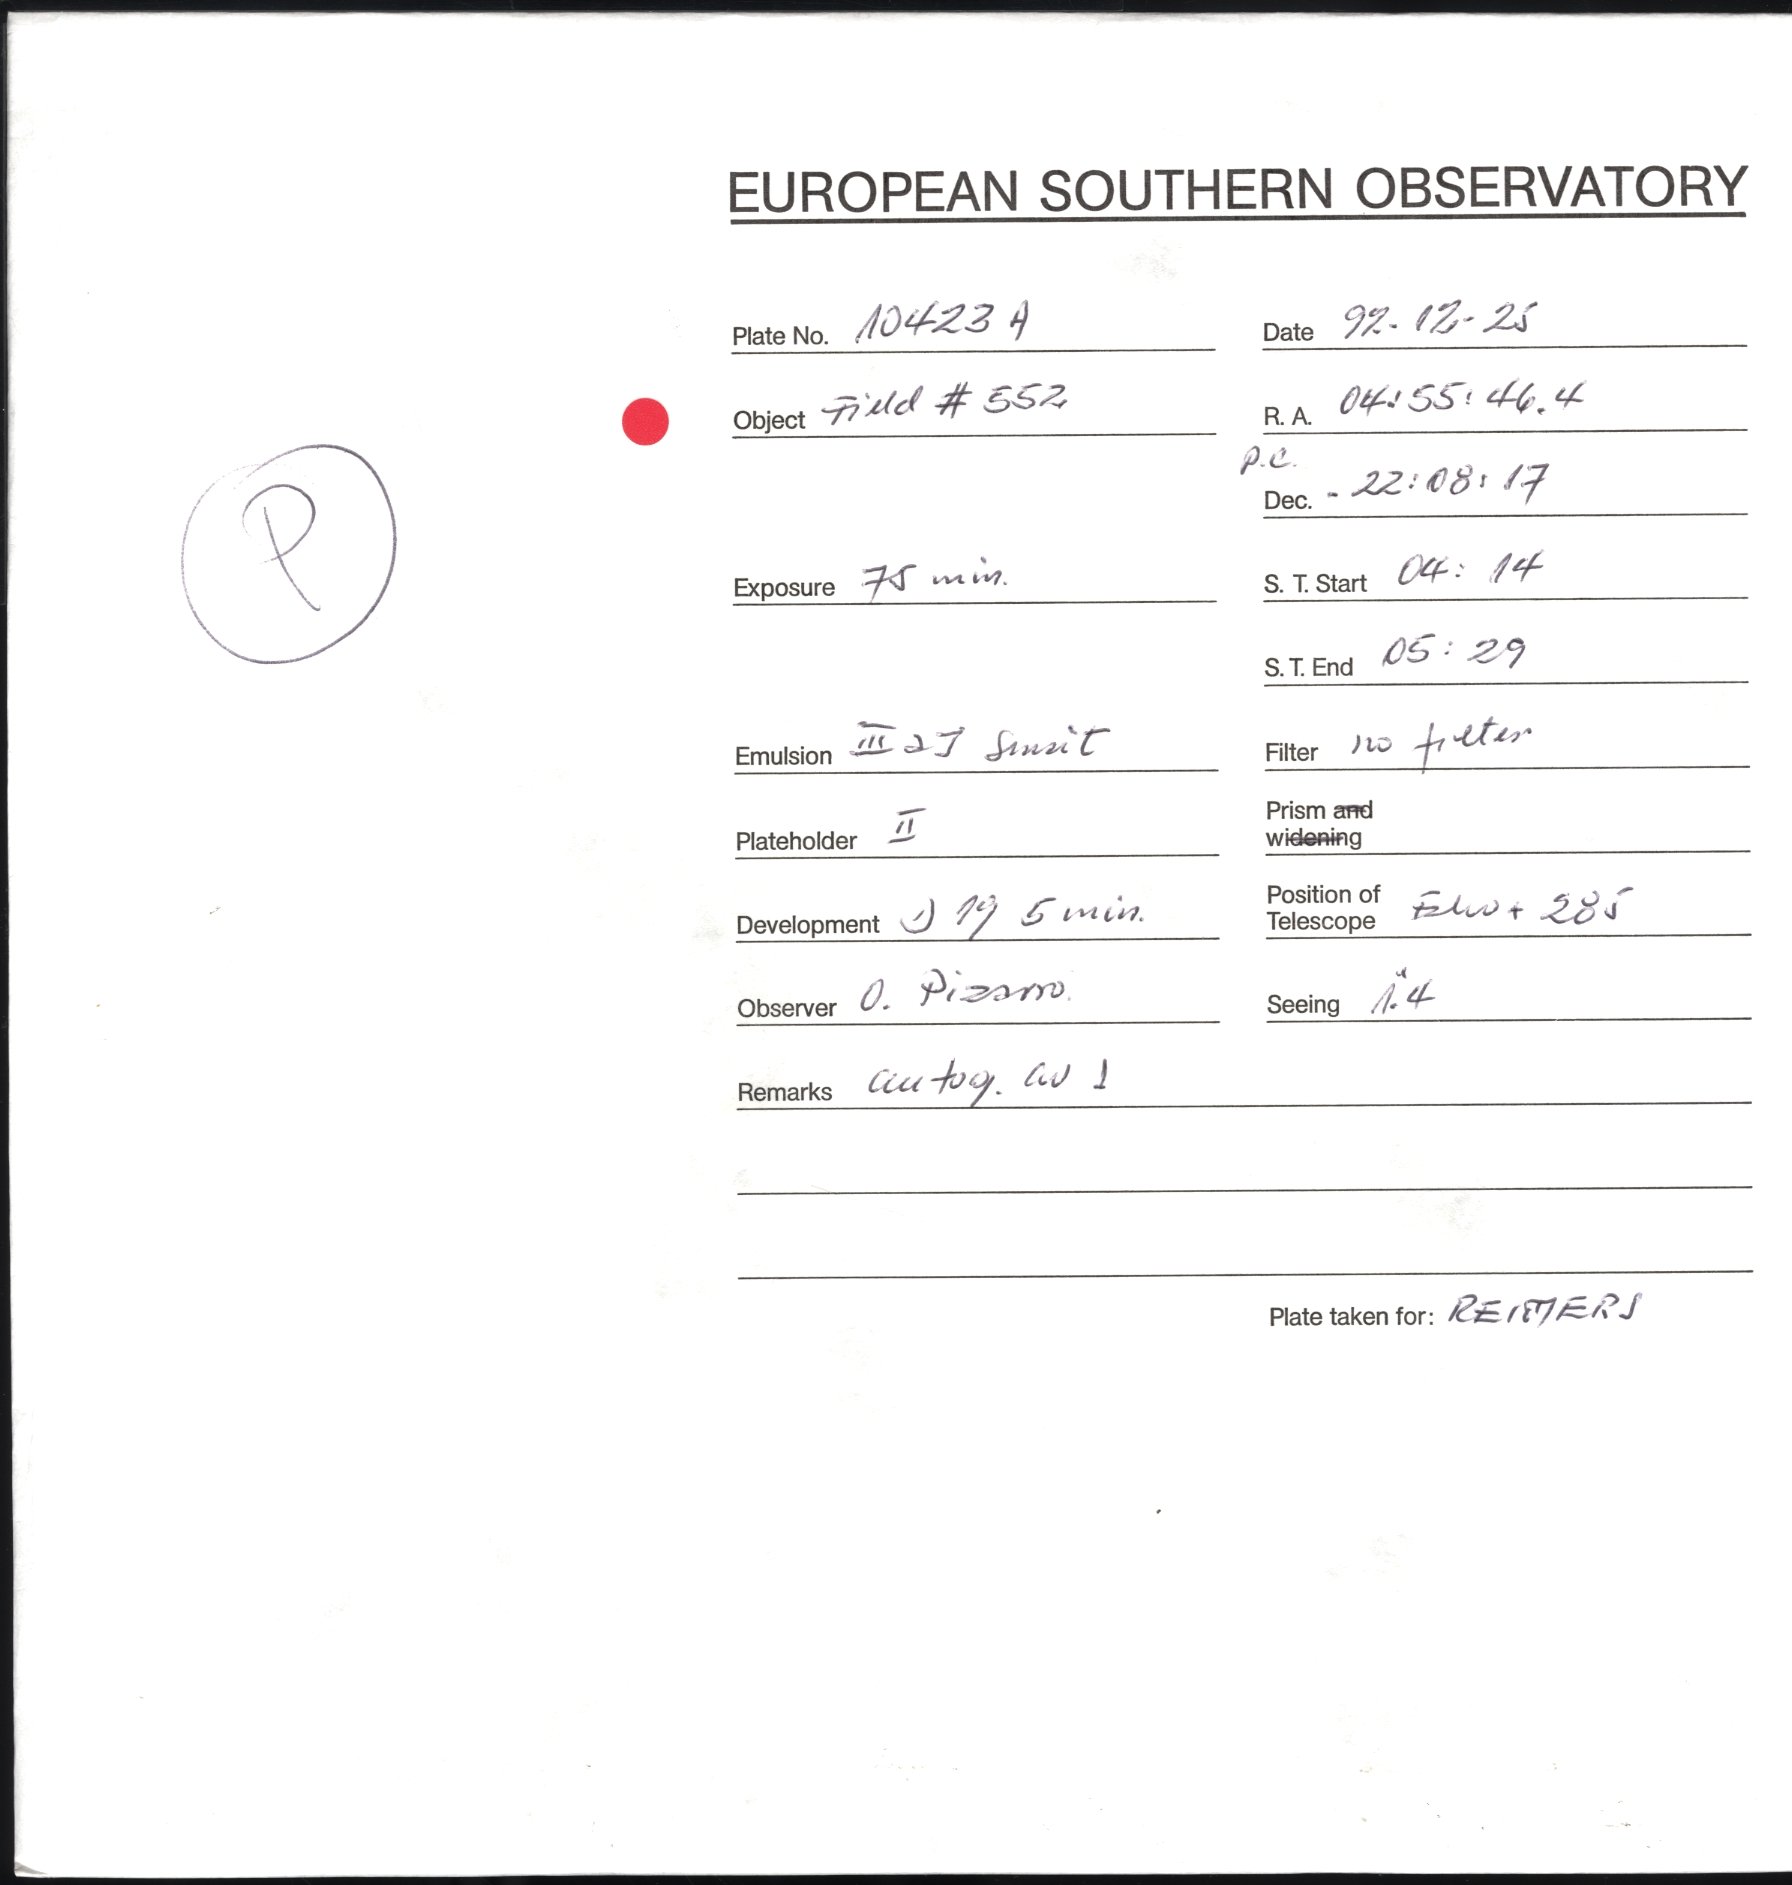 EUROPEAN SOUTHERN OBSERVATORY
Plate No. 10423 A
Date 92-12-25
Object Field # 552
R. A. 04:55:46.4
P
p.c.
Dec. - 22:08:17
Exposure 75 min.
S. T. Start 04: 14
S. T. End 05: 29
Emulsion III aJ
Filter no filter
Plateholder II
Prism and
widening
Development 19 5 min.
Position of
Telescope + 285
Observer O. Pizarro.
Seeing 1."4
Remarks autog. 1
Plate taken for: REIMERS